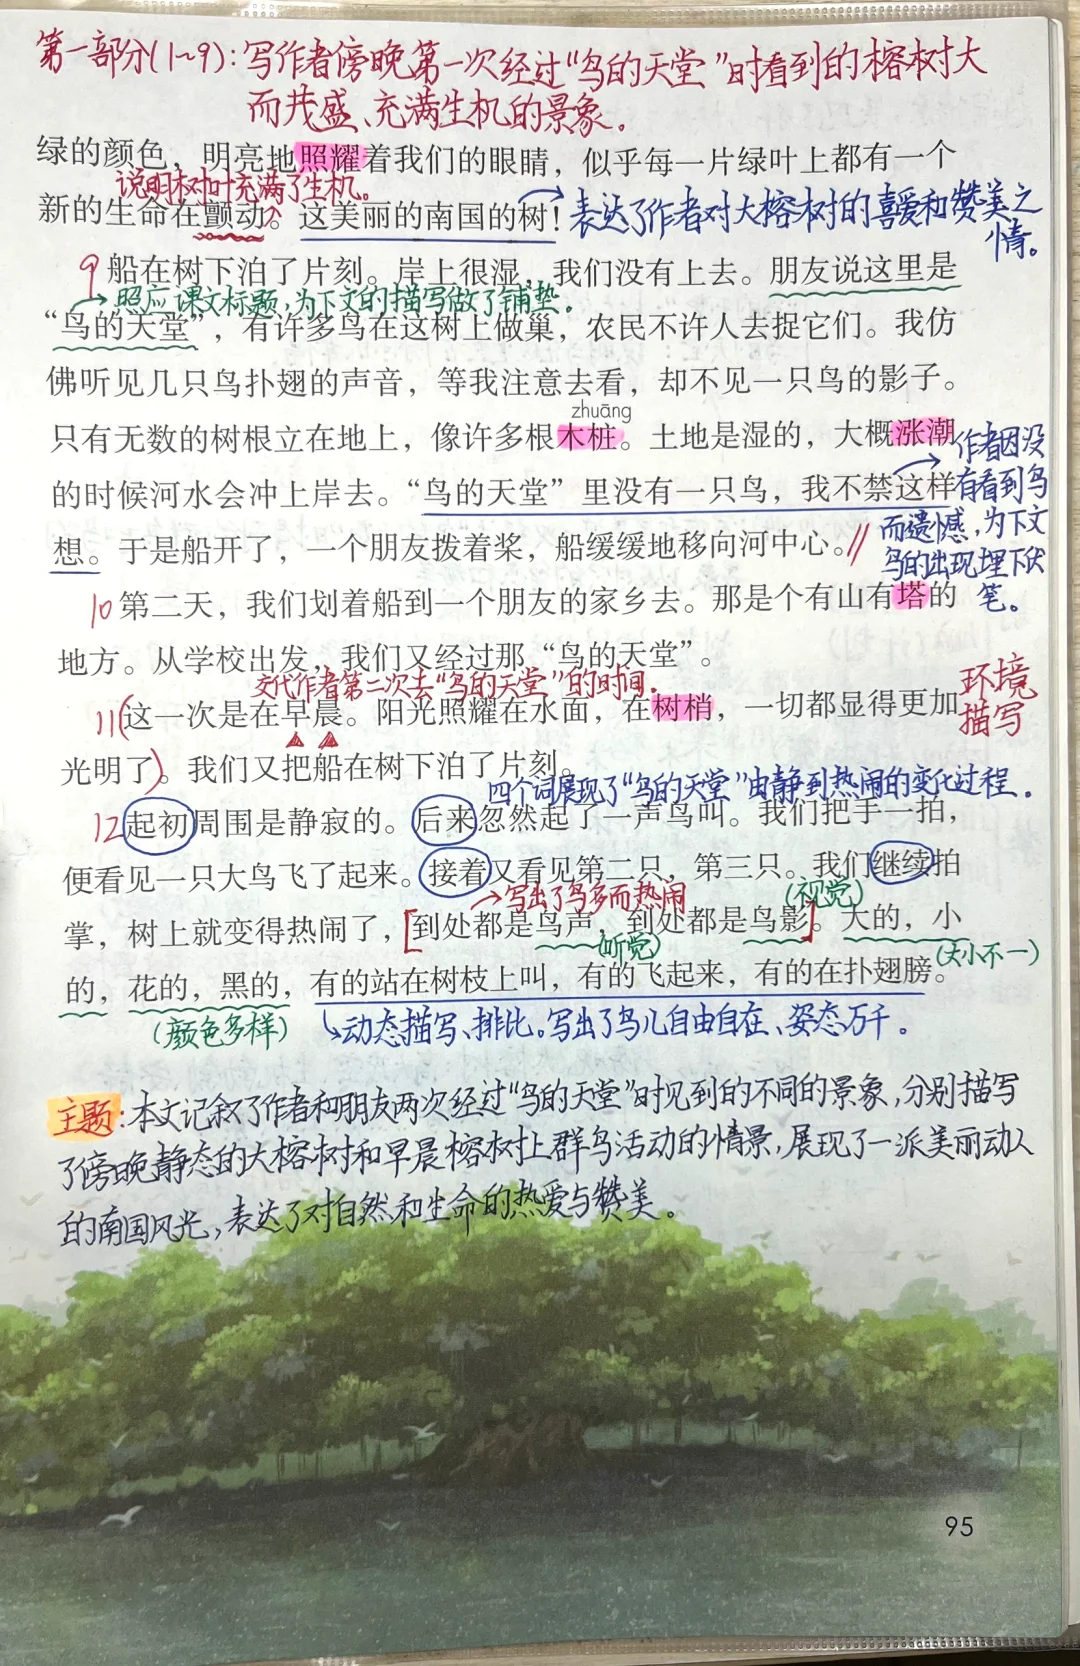 第一部分(1~9)：写作者傍晚第一次经过“鸟的天堂”时看到的榕树大
而茂盛、充满生机的景象。
绿的颜色，明亮地照耀着我们的眼睛，似乎每一片绿叶上都有一个
说明树叶充满了生机。
新的生命在颤动。这美丽的南国的树！
表达了作者对大榕树的喜爱和赞美之
情。
9 船在树下泊了片刻。岸上很湿，我们没有上去。朋友说这里是
照应课文标题，为下文的描写做了铺垫。
“鸟的天堂”，有许多鸟在这树上做巢，农民不许人去捉它们。我仿
佛听见几只鸟扑翅的声音，等我注意去看，却不见一只鸟的影子。
zhuāng
只有无数的树根立在地上，像许多根木桩。土地是湿的，大概涨潮
的时候河水会冲上岸去。“鸟的天堂”里没有一只鸟，我不禁这样
想。于是船开了，一个朋友拨着桨，船缓缓地移向河中心。
作者因没
有看到鸟
而遗憾，为下文
鸟的出现埋下伏
笔。
10 第二天，我们划着船到一个朋友的家乡去。那是个有山有塔的
地方。从学校出发，我们又经过那“鸟的天堂”。
交代作者第二次去“鸟的天堂”的时间。
11(这一次是在早晨。阳光照耀在水面，在树梢，一切都显得更加
光明了)。我们又把船在树下泊了片刻。
环境
描写
四个词展现了“鸟的天堂”由静到热闹的变化过程。
12 起初周围是静寂的。后来忽然起了一声鸟叫。我们把手一拍，
便看见一只大鸟飞了起来。接着又看见第二只，第三只。我们继续拍
写出了鸟多而热闹
(视觉)
掌，树上就变得热闹了，[到处都是鸟声，到处都是鸟影]。大的，小
(听觉)
(大小不一)
的，花的，黑的，有的站在树枝上叫，有的飞起来，有的在扑翅膀。
(颜色多样)
动态描写、排比。写出了鸟儿自由自在、姿态万千。
主题：本文记叙了作者和朋友两次经过“鸟的天堂”时见到的不同的景象，分别描写
了傍晚静态的大榕树和早晨榕树上群鸟活动的情景，展现了一派美丽动人
的南国风光，表达了对自然和生命的热爱与赞美。
95